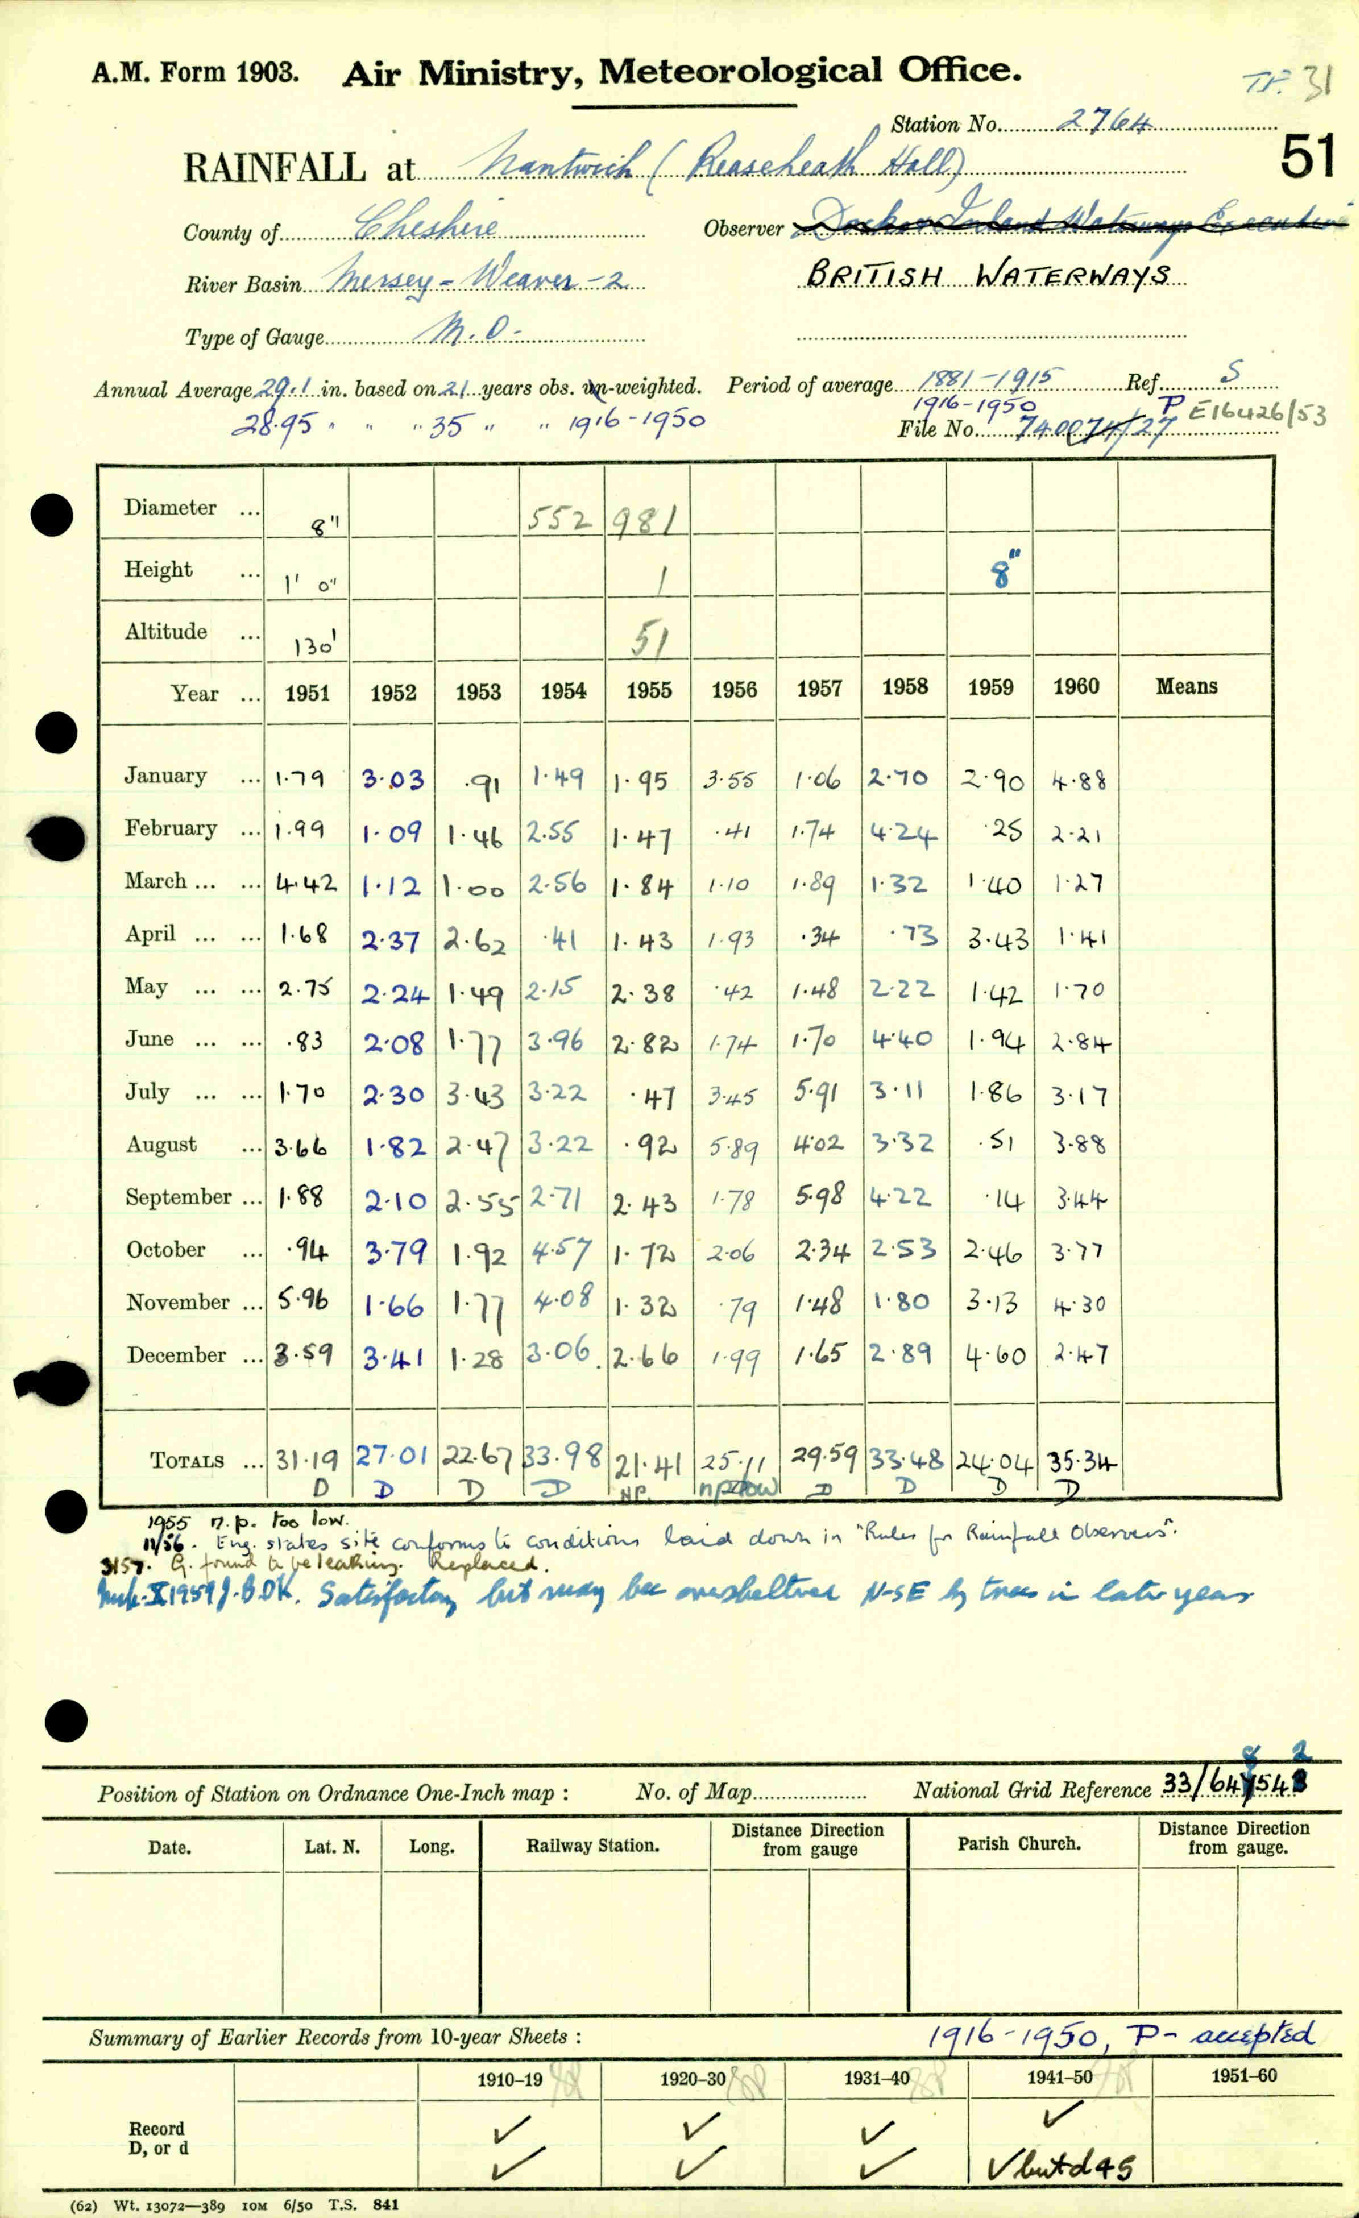 A.M. Form 1903. Air Ministry, Meteorological Office.
T.P. 31
Station No. 2764
51
RAINFALL at Nantwich (Reaseheath Hall)
County of Cheshire Observer Docks & Inland Waterways Executive
River Basin Mersey - Weaver - 2 BRITISH WATERWAYS
Type of Gauge M.O.
Annual Average 29.1 in. based on 21 years obs. un-weighted. Period of average 1881-1915 Ref. S
28.95 " " " 35 " " 1916-1950 1916-1950 P E16426/53
File No. 740074/27
Diameter ... 8" 552 981
Height ... 1' 0" 1 8"
Altitude ... 130' 51
Year ... 1951 1952 1953 1954 1955 1956 1957 1958 1959 1960 Means
January ... 1.79 3.03 .91 1.49 1.95 3.55 1.06 2.70 2.90 4.88
February ... 1.99 1.09 1.46 2.55 1.47 .41 1.74 4.24 .25 2.21
March ... ... 4.42 1.12 1.00 2.56 1.84 1.10 1.89 1.32 1.40 1.27
April ... ... 1.68 2.37 2.62 .41 1.43 1.93 .34 .73 3.43 1.41
May ... ... 2.75 2.24 1.49 2.15 2.38 .42 1.48 2.22 1.42 1.70
June ... ... .83 2.08 1.77 3.96 2.82 1.74 1.70 4.40 1.94 2.84
July ... ... 1.70 2.30 3.43 3.22 .47 3.45 5.91 3.11 1.86 3.17
August ... 3.66 1.82 2.47 3.22 .92 5.89 4.02 3.32 .51 3.88
September ... 1.88 2.10 2.55 2.71 2.43 1.78 5.98 4.22 .14 3.44
October ... .94 3.79 1.92 4.57 1.72 2.06 2.34 2.53 2.46 3.77
November ... 5.96 1.66 1.77 4.08 1.32 .79 1.48 1.80 3.13 4.30
December ... 3.59 3.41 1.28 3.06 2.66 1.99 1.65 2.89 4.60 2.47
TOTALS ... 31.19 27.01 22.67 33.98 21.41 25.11 29.59 33.48 24.04 35.34
D D D D N.P. np low D D D D
1955 n.p. too low.
11/56. Eng. states site conforms to conditions laid down in "Rules for Rainfall Observers".
3157. G. found to be leaking. Replaced.
X 1959 J.B.OK. Satisfactory but may be oversheltered N-SE by trees in later years
8 2
Position of Station on Ordnance One-Inch map : No. of Map National Grid Reference 33/647543
Date. Lat. N. Long. Railway Station. Distance Direction from gauge Parish Church. Distance Direction from gauge.
Summary of Earlier Records from 10-year Sheets : 1916-1950, P- accepted
1910-19 1920-30 1931-40 1941-50 1951-60
Record ✓ ✓ ✓ ✓
D, or d ✓ ✓ ✓ ✓ but d 45
(62) Wt. 13072—389 10M 6/50 T.S. 841